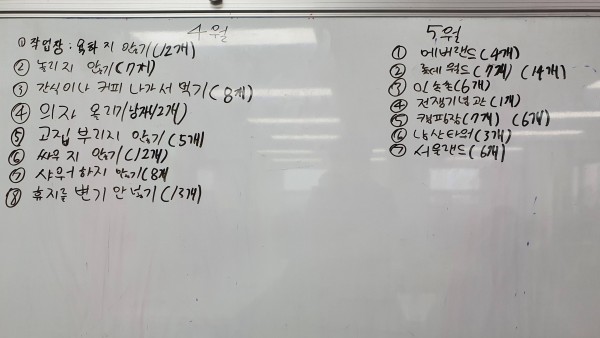 4월
① 작업장: 욕하지 않기(12개)
② 놀리지 않기(7개)
③ 간식이나 커피 나가서 먹기(8개)
④ 의자 올리기/남자(12개)
⑤ 고집 부리지 않기(5개)
⑥ 싸우지 않기(12개)
⑦ 샤워하지 않기(8개
⑧ 휴지를 변기 안 넣기(13개)
5월
① 에버랜드(4개)
② 롯데월드(7개) (14개)
③ (6개)
④ 전쟁기념관(1개)
⑤ 캠핑장(7개) (6개)
⑥ 남산타워(3개)
⑦ 서울랜드(6개)